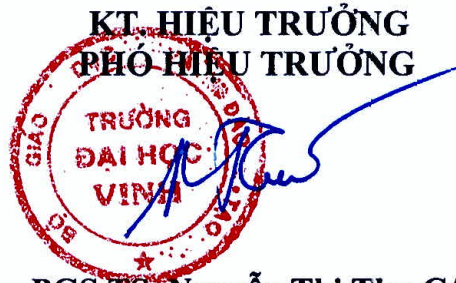 KT. HIỆU TRƯỞNG
PHÓ HIỆU TRƯỞNG
BỘ GIÁO ĐÀO TẠO
TRƯỜNG
ĐẠI HỌC
VINH
PGS.TS. Nguyễn Thị Thu